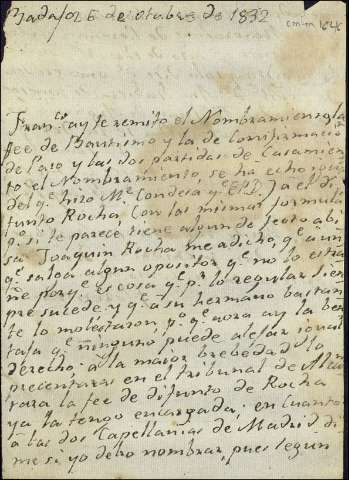 Badajoz 6 de Otubre de 1832
Cm-m 1828
Franco ay te remito el Nombramiento, la
fee de Bautismo y la de Confirmació
de Paco y las dos partidas de Casamien
to el Nombramiento, se ha echo igual
del qe hizo Me Condesa y a el di
funto Rocha, con las mismas formula
qe si te parece tiene algun defecto abi
sa. Joaquin Rocha me a dicho, qe aun
qe salga algun opositor qe no lo estra
ñe porqe es cosa qe pr lo regular siem
pre sucede, y qe a su hermano bastan
te lo molestaron, pr qe aora ay la ben
taja qe ninguno puede alegar igual
derecho, a la maior brebedad lo
precentaras en el tribunal de
para la fee de difunto de Rocha
ya la tengo encargada, en cuanto
a las dos Capellanias de Madrid di
me si yo debo nombrar, pues segun